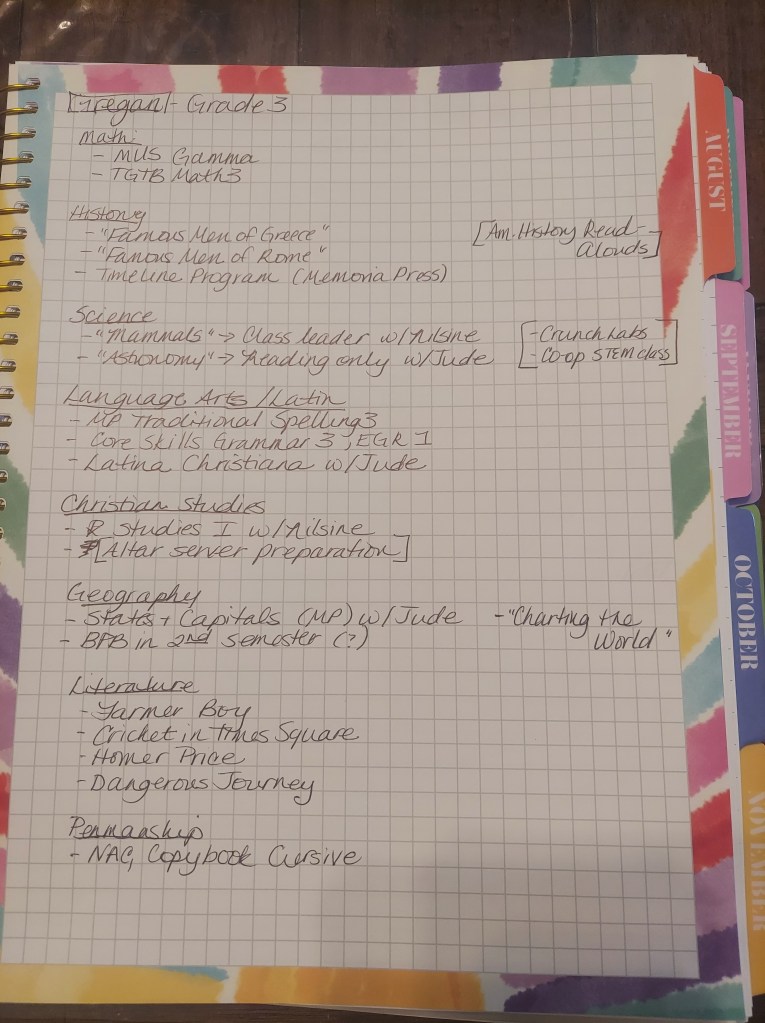 Gregan - Grade 3
Math:
- MUS Gamma
- TGTB Math 3
History
- "Famous Men of Greece"
[Am. History Read-
Alouds]
- "Famous Men of Rome"
- Timeline Program (Memoria Press)
Science
- "Mammals" → Class leader w/ Nilsine
[- CrunchLabs
- "Astronomy" → Reading only w/ Jude
- Co-op STEM class]
Language Arts / Latin
- MP Traditional Spelling 3
- Core Skills Grammar 3, EGR 1
- Latina Christiana w/ Jude
Christian Studies
- Studies I w/ Nilsine
- [Altar server preparation]
Geography
- States + Capitals (MP) w/ Jude
- "Charting the
World"
- BPB in 2nd semester (?)
Literature
- Farmer Boy
- Cricket in Times Square
- Homer Price
- Dangerous Journey
Penmanship
- NAC Copybook Cursive
AUGUST
SEPTEMBER
OCTOBER
NOVEMBER